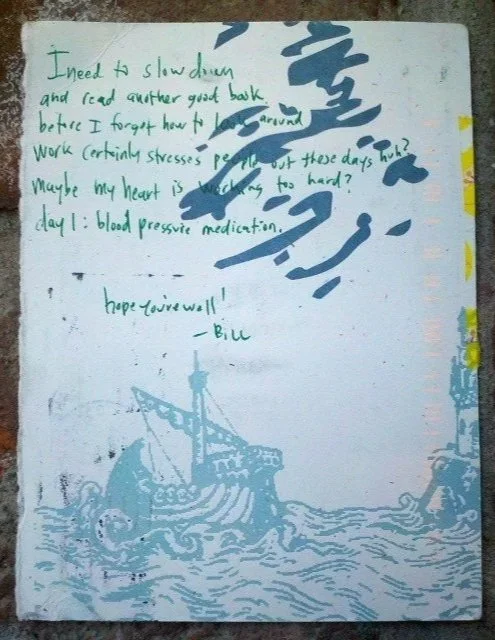 I need to slow down
and read another good book
before I forget how to look around
work certainly stresses people out these days huh?
maybe my heart is working too hard?
day 1: blood pressure medication.
hope you're well!
- Bill